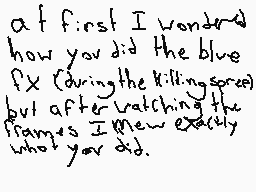 at first I wondered
how you did the blue
fx (during the killing spree)
but after watching the
frames I knew exactly
what you did.